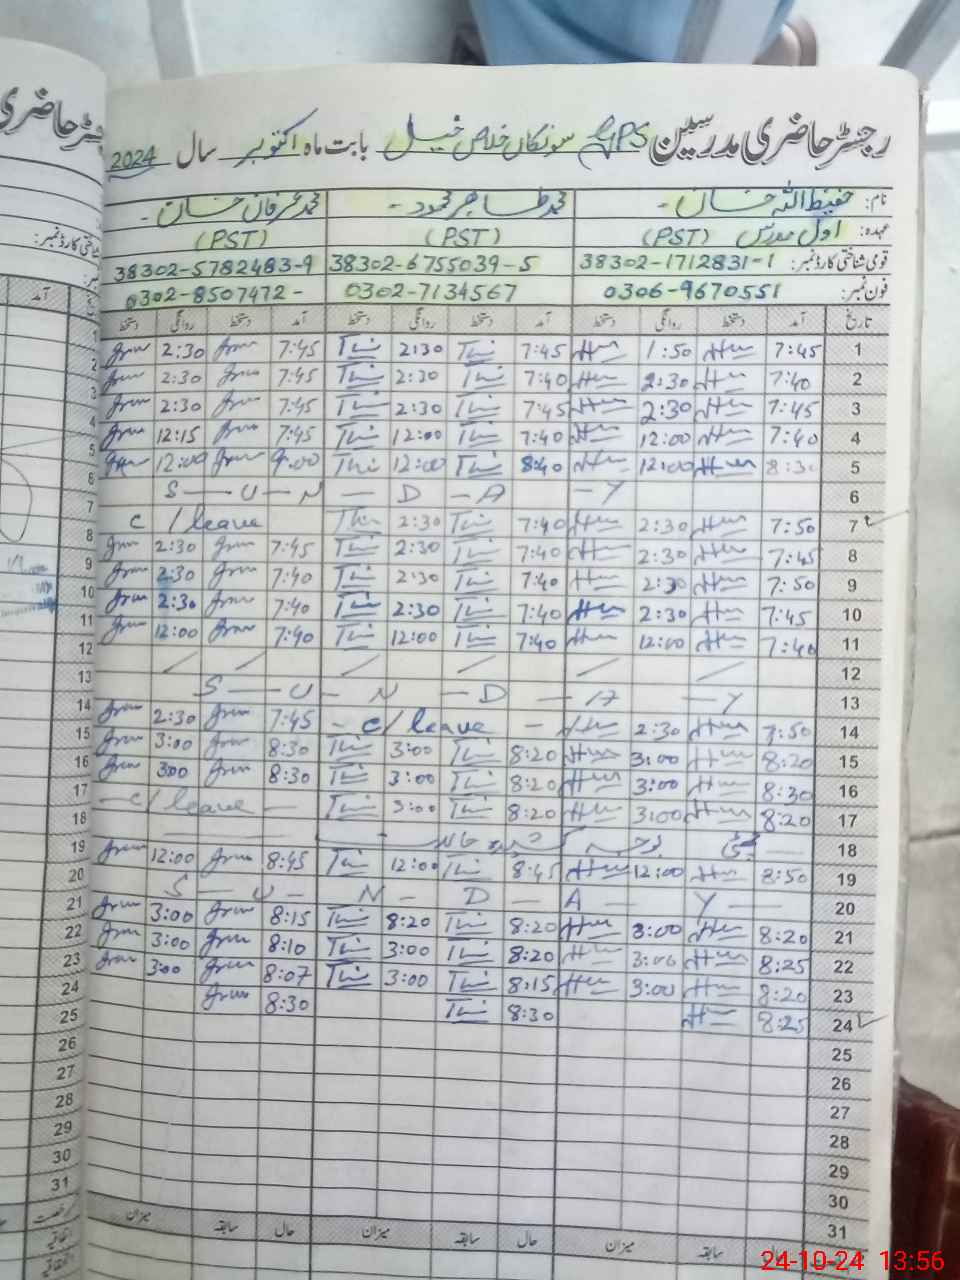 رجسٹر حاضری مدرسین GPS سونکاں خلاص خیل بابت ماہ اکتوبر سال 2024
نام: حفیظ اللہ خان - محمد طاہر محمود - محمد عرفان خان -
عہدہ: اول مدرس (PST) (PST) (PST)
قومی شناختی کارڈ نمبر: 38302-1712831-1 38302-6755039-5 38302-5782483-9
فون نمبر: 0306-9670551 0302-7134567 0302-8507472 -
تاریخ آمد دستخط روانگی دستخط آمد دستخط روانگی دستخط آمد دستخط روانگی دستخط
1 7:45 1:50 7:45 2:30 7:45 2:30
2 7:40 2:30 7:40 2:30 7:45 2:30
3 7:45 2:30 7:45 2:30 7:45 2:30
4 7:40 12:00 7:40 12:00 7:45 12:15
5 8:30 12:00 8:40 12:00 9:00 12:00
6 S - U - N - D - A - Y
7 7:50 2:30 7:40 2:30 c/leave
8 7:45 2:30 7:40 2:30 7:45 2:30
9 7:50 2:30 7:40 2:30 7:40 2:30
10 7:45 2:30 7:40 2:30 7:40 2:30
11 7:40 12:00 7:40 12:00 7:40 12:00
12
13 S - U - N - D - A - Y
14 7:50 2:30 - c/leave - 7:45 2:30
15 8:20 3:00 8:20 3:00 8:30 3:00
16 8:30 3:00 8:20 3:00 8:30 3:00
17 8:20 3:00 8:20 3:00 - c/leave -
18 چھٹی بوجہ
19 8:50 12:00 8:45 12:00 8:45 12:00
20 S - U - N - D - A - Y
21 8:20 3:00 8:20 8:20 8:15 3:00
22 8:25 3:00 8:20 3:00 8:10 3:00
23 8:20 3:00 8:15 3:00 8:07 3:00
24 8:25 8:30 8:30
25
26
27
28
29
30
31
حال سابقہ میزان حال سابقہ میزان حال سابقہ میزان
24-10-24 13:56